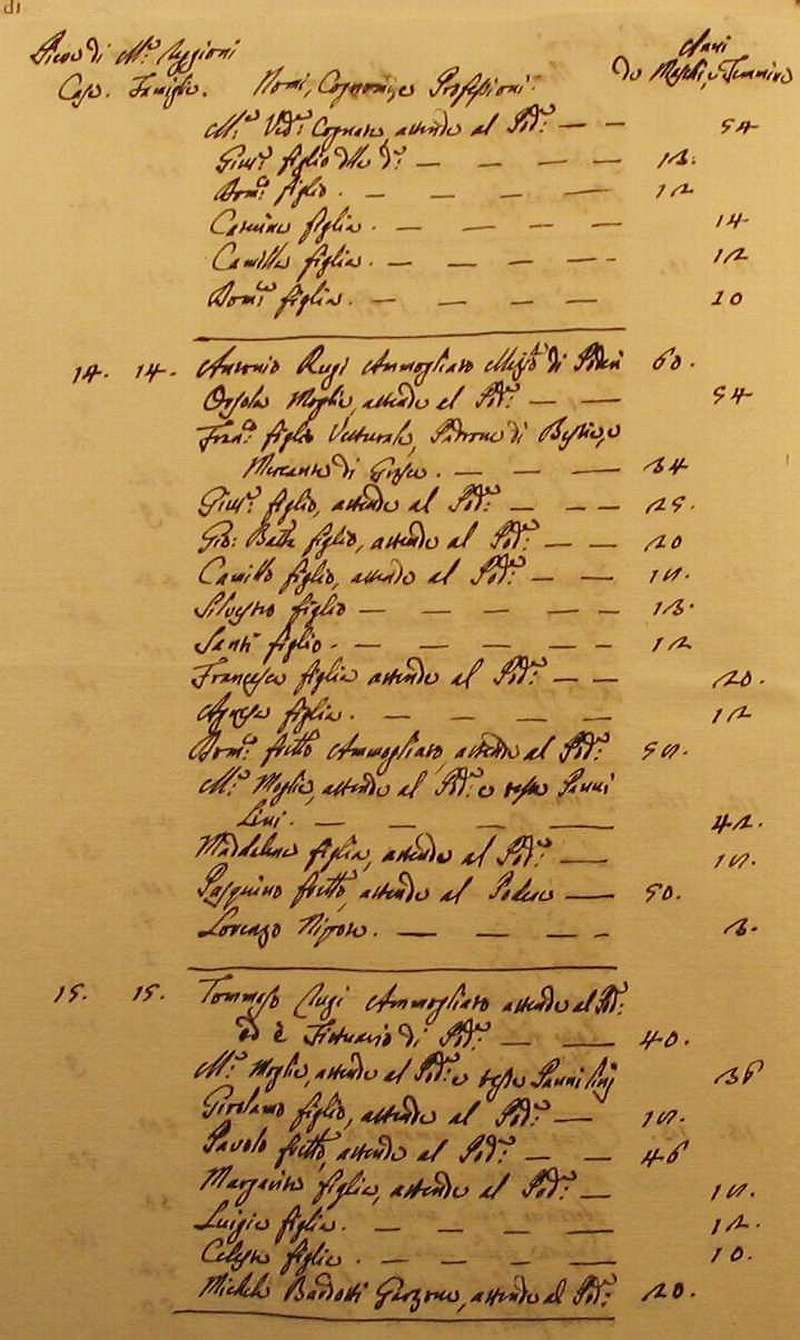 di
Pieve di M.ª
Anni
Case. Famiglie. Nomi, Cognomi, e Professioni. De Maschi, e Femmine
M.ª Ved.ª Cognata, attende al Pod.e — — 54
Gius.e figlio della d.ª — — — — 13.
Dom.co figlio. — — — — 12
figlia. — — — — 14
Camilla figlia. — — — — 12
Dom.ca figlia. — — — — 10
14. 14. Antonio Rugi Ammogliato di Poderi 60.
Orsola Moglie, attende al Pod.e — — 54
Fran.co figlio Vetturale, Padrone di Bestie, e
Mercante di — — — 34
Gius.e figlio, attende al Pod.e — — — 25.
Gio: Batta figlio, attende al Pod.e — — 20
Camillo figlio, attende al Pod.e — — 17.
Silvestro figlio — — — — — 13.
Santi figlio. — — — — — 12
Francesca figlia attende al Pod.e — — 20.
Agnesa figlia. — — — — 12
Dom.co frat.o Ammogliato, attende al Pod.e 57.
M.ª Moglie, attende al Pod.e e tesse Panni
Lini. — — — — 42.
Maddalena figlia, attende al Pod.e — 17.
Pasquino frat.o, attende al Podere — 50.
Lorenzo Nipote. — — — 3.
15. 15. Tommaso Rugi Ammogliato attende al Pod.e
ed è di Pod.e — — 40.
M.ª Moglie, attende al Pod.e e tesse Panni lini 36
Girolamo figlio, attende al Pod.e — 17.
Pavolo frat.o, attende al Pod.e — — 46
Margarita figlia, attende al Pod.e — 17.
Luigia figlia. — — — — 12.
Celeste figlia. — — — — 10.
Michele Bardotti Garzone, attende al Pod.e 20.